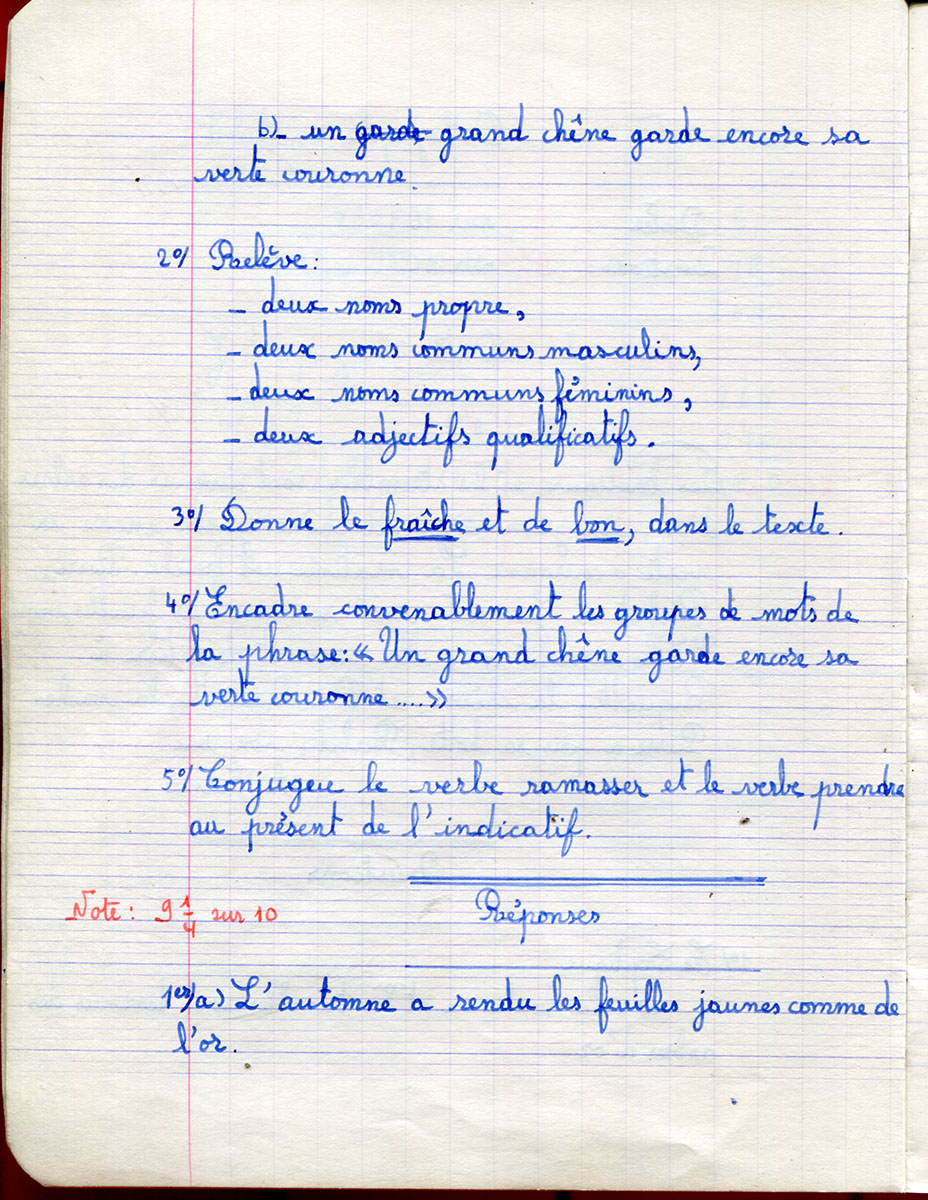 b)_ un garde grand chêne garde encore sa
verte couronne.
2º/ Relève :
_ deux noms propre,
_ deux noms communs masculins,
_ deux noms communs féminins,
_ deux adjectifs qualificatifs.
3º/ Donne le fraîche et de bon, dans le texte.
4º/ Encadre convenablement les groupes de mots de
la phrase : « Un grand chêne garde encore sa
verte couronne .... »
5º/ Conjugeu le verbe ramasser et le verbe prendre
au présent de l'indicatif.
Note : 9 1/4 sur 10
Réponses
1er/a) L'automne a rendu les feuilles jaunes comme de
l'or.